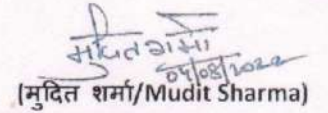 मुदित शर्मा
04/08/2022
(मुदित शर्मा/Mudit Sharma)